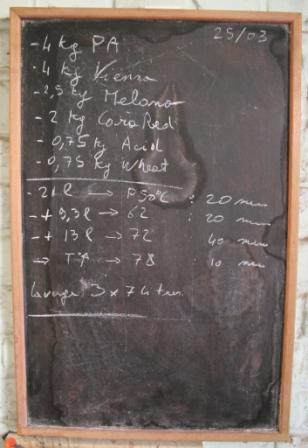 25/03
- 4 kg PA
- 4 kg Vienna
- 2,5 kg Melano
- 2 kg CaraRed
- 0,75 kg Acid
- 0,75 kg Wheat
- 21 l → P 50°C : 20 min
- + 9,3 l → 62 : 20 min
- + 13 l → 72 : 40 min
→ T°A → 78 : 10 min
Lavage 3 x 7 liter